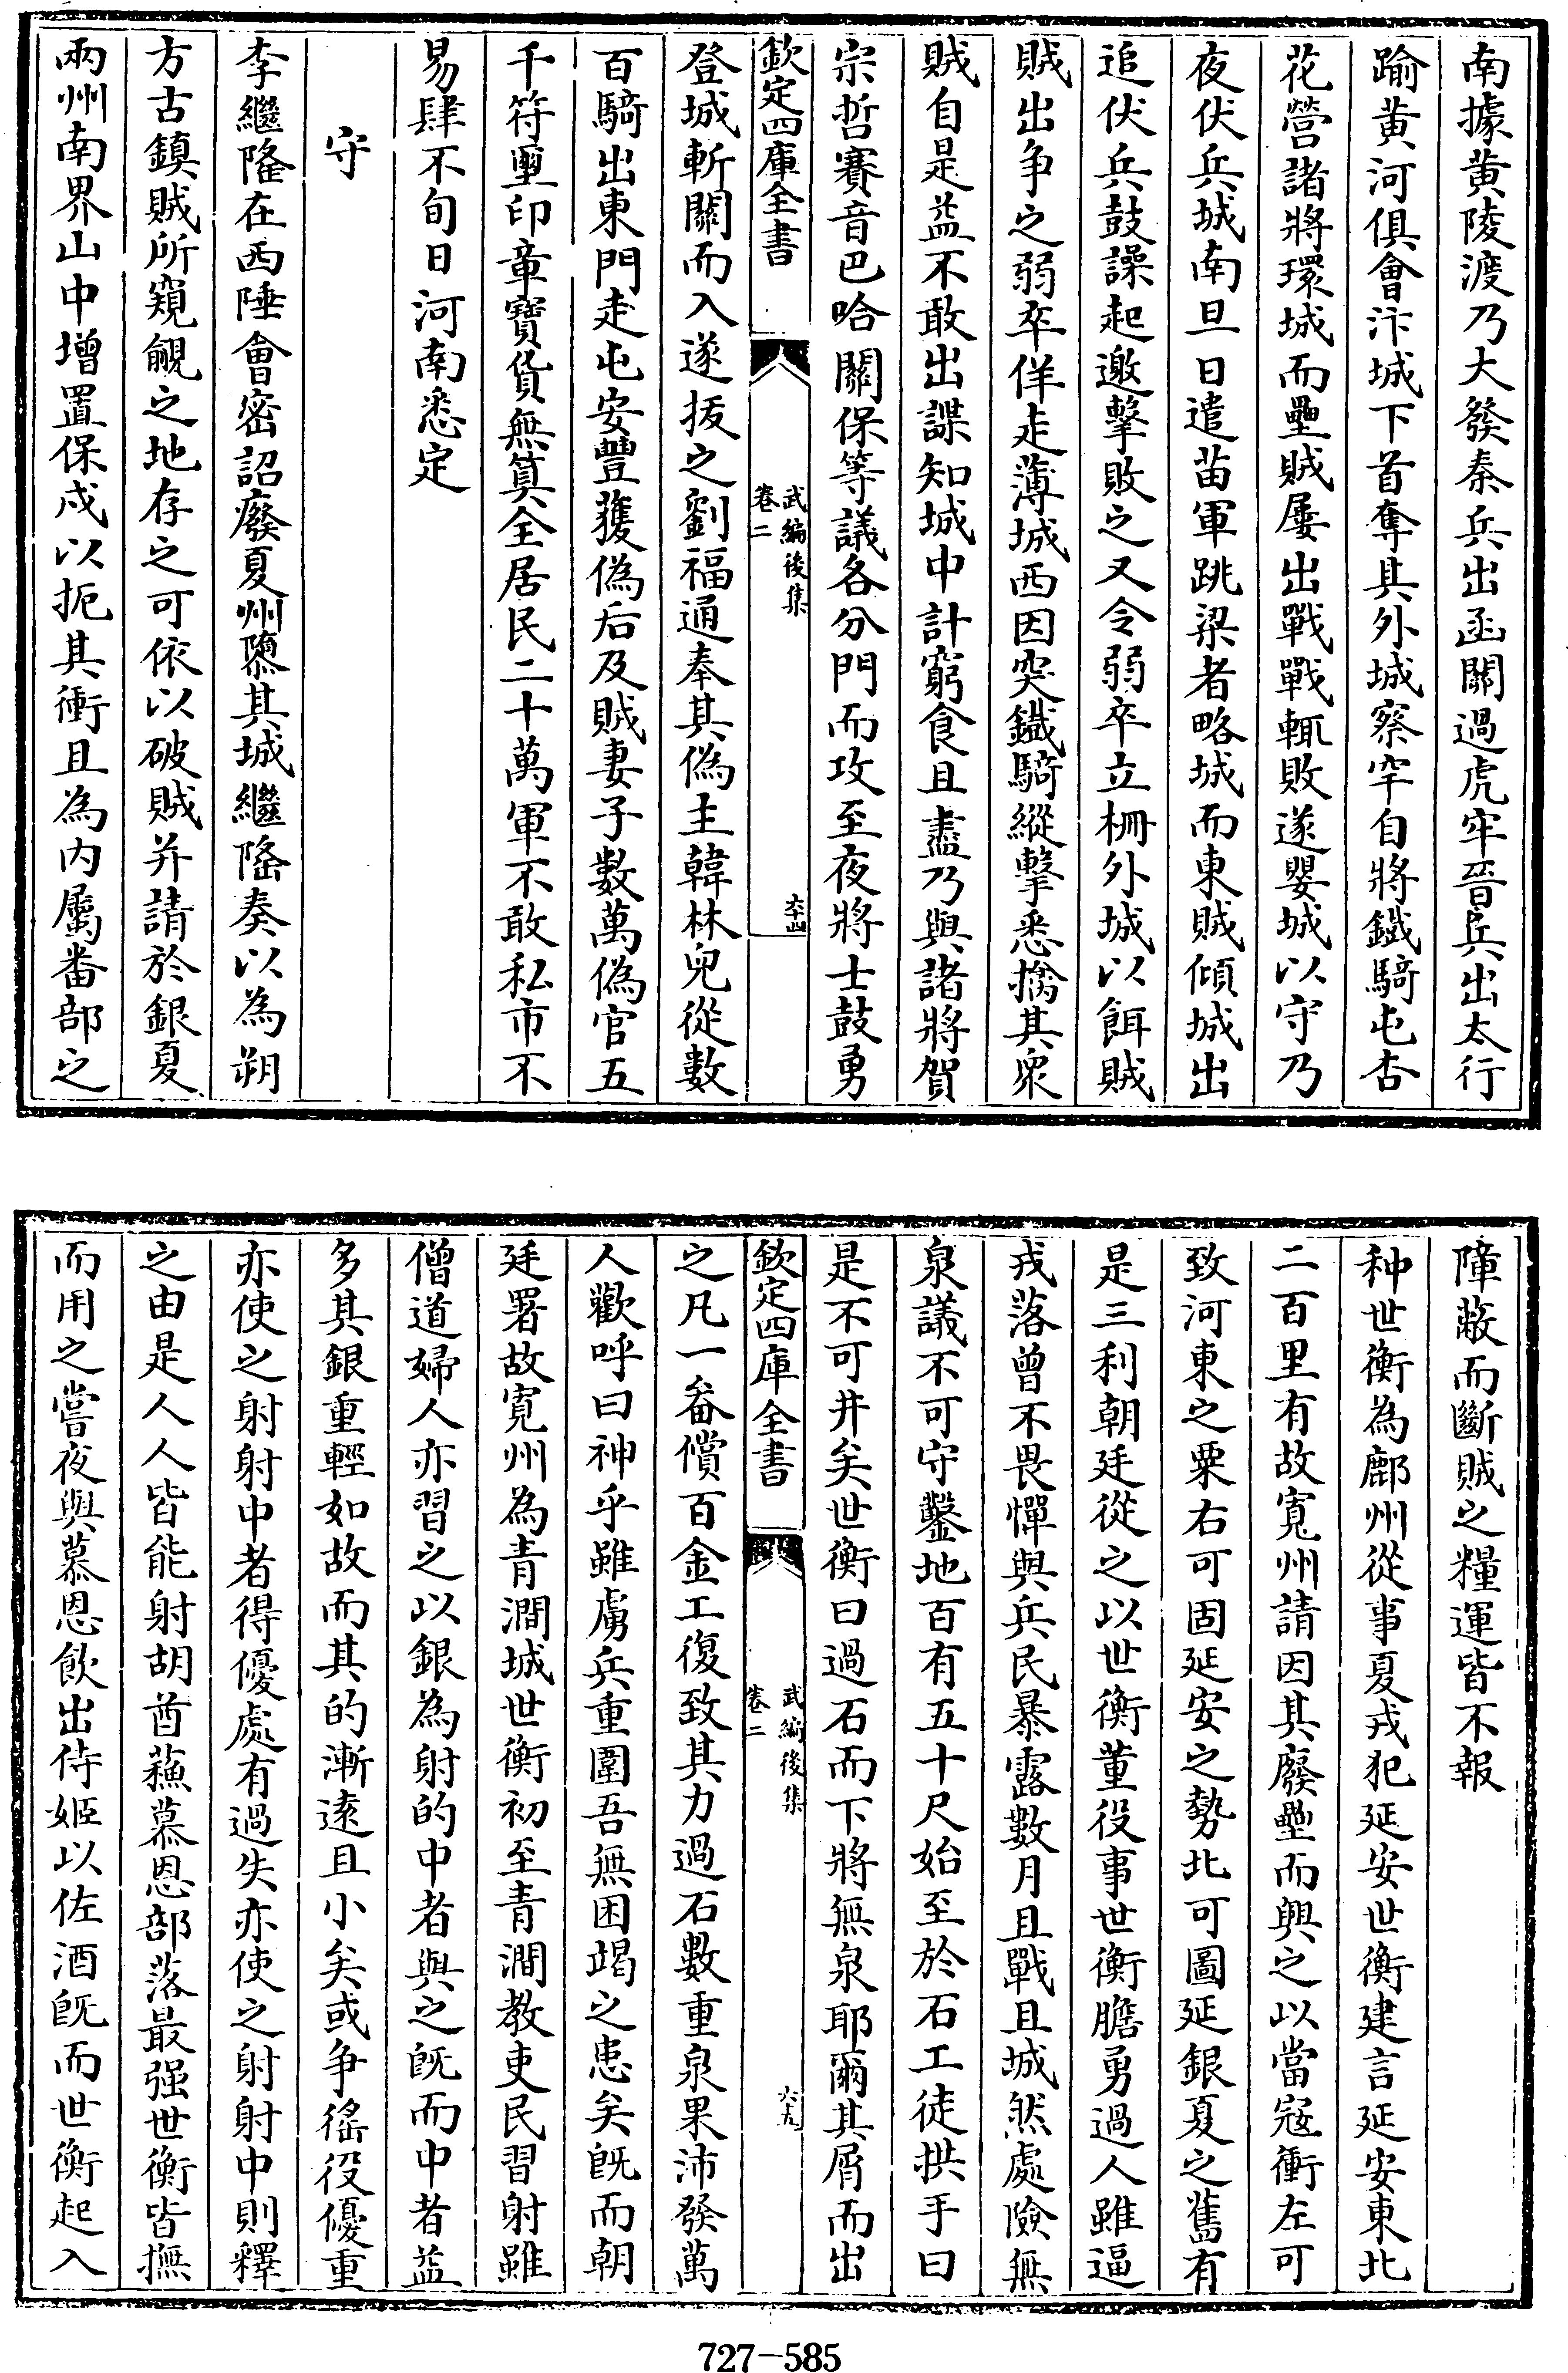 南據黄陵渡乃大發秦兵出函關過虎牢晉兵出太行
踰黄河俱會汴城下首奪其外城察罕自將鐵騎屯杏
花營諸將環城而壘賊屢出戰戰輒敗遂嬰城以守乃
夜伏兵城南旦日遣苗軍跳梁者略城而東賊傾城出
追伏兵鼓譟起邀擊敗之又令弱卒立柵外城以餌賊
賊出爭之弱卒佯走薄城西因突鐵騎縱擊悉擒其衆
賊自是益不敢出諜知城中計窮食且盡乃與諸將賀
宗哲賽音巴哈關保等議各分門而攻至夜將士鼓勇
欽定四庫全書
武編後集
卷二
六十四
登城斬關而入遂拔之劉福通奉其偽主韓林兒從數
百騎出東門走屯安豐獲偽后及賊妻子數萬偽官五
千符璽印章寶貨無筭全居民二十萬軍不敢私市不
易肆不旬日河南悉定
守
李繼隆在西陲會密詔廢夏州隳其城繼隆奏以為朔
方古鎮賊所窺覦之地存之可依以破賊并請於銀夏
兩州南界山中增置保戍以扼其衝且為内屬番部之
障蔽而斷賊之糧運皆不報
种世衡為鄜州從事夏戎犯延安世衡建言延安東北
二百里有故寛州請因其廢壘而興之以當冦衝左可
致河東之粟右可固延安之勢北可圖延銀夏之舊有
是三利朝廷從之以世衡董役事世衡膽勇過人雖逼
戎落曾不畏憚與兵民暴露數月且戰且城然處險無
泉議不可守鑿地百有五十尺始至於石工徒拱手曰
是不可井矣世衡曰過石而下將無泉耶爾其屑而出
欽定四庫全書
武編後集
卷二
六十五
之凡一畚償百金工復致其力過石數重泉果沛發萬
人歡呼曰神乎雖虜兵重圍吾無困竭之患矣既而朝
廷署故寛州為青澗城世衡初至青澗教吏民習射雖
僧道婦人亦習之以銀為射的中者與之既而中者益
多其銀重輕如故而其的漸遠且小矣或爭徭役優重
亦使之射射中者得優處有過失亦使之射射中則釋
之由是人人皆能射胡酋蘓慕恩部落最强世衡皆撫
而用之嘗夜與慕恩飲出侍姬以佐酒既而世衡起入
727-585